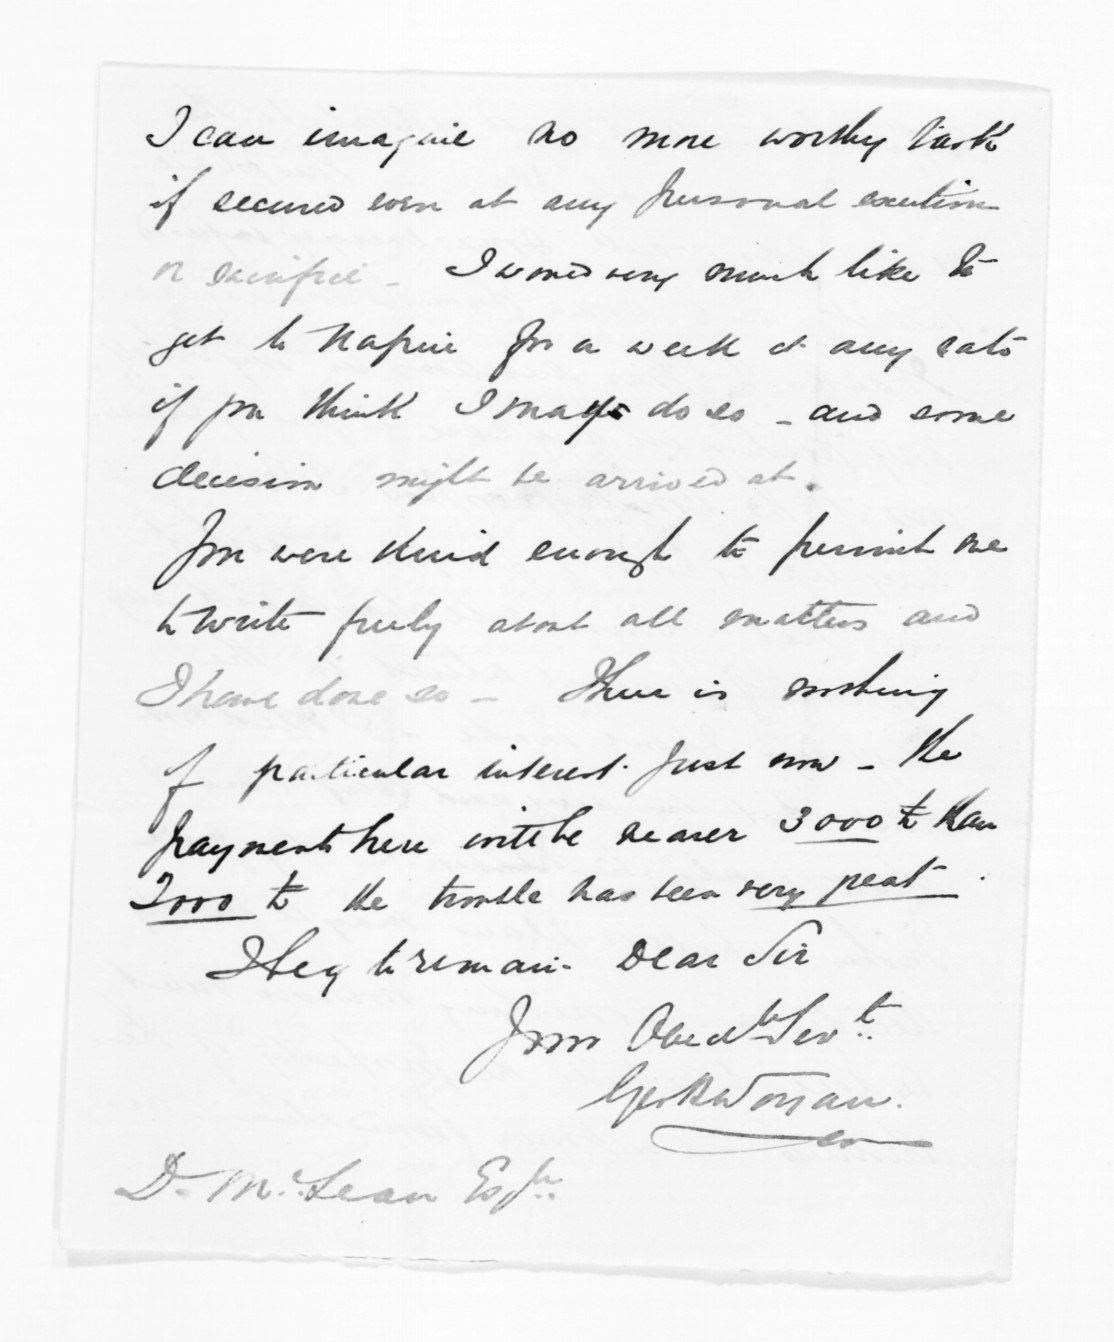 I can imagine no more worthy task
if secured even at any personal exertion
or sacrifice - I would very much like to
get to Napier for a week at any rate
if you think I may do so - and some
decision might be arrived at.
You were kind enough to permit me
to write freely about all matters and
I have done so - There is nothing
of particular interest just now - the
payment here will be nearer 3000 £ than
2000 £ the trouble has been very great.
I beg to remain Dear Sir
Your Obedt Servt
Geo B Worgan
D. McLean Esqr